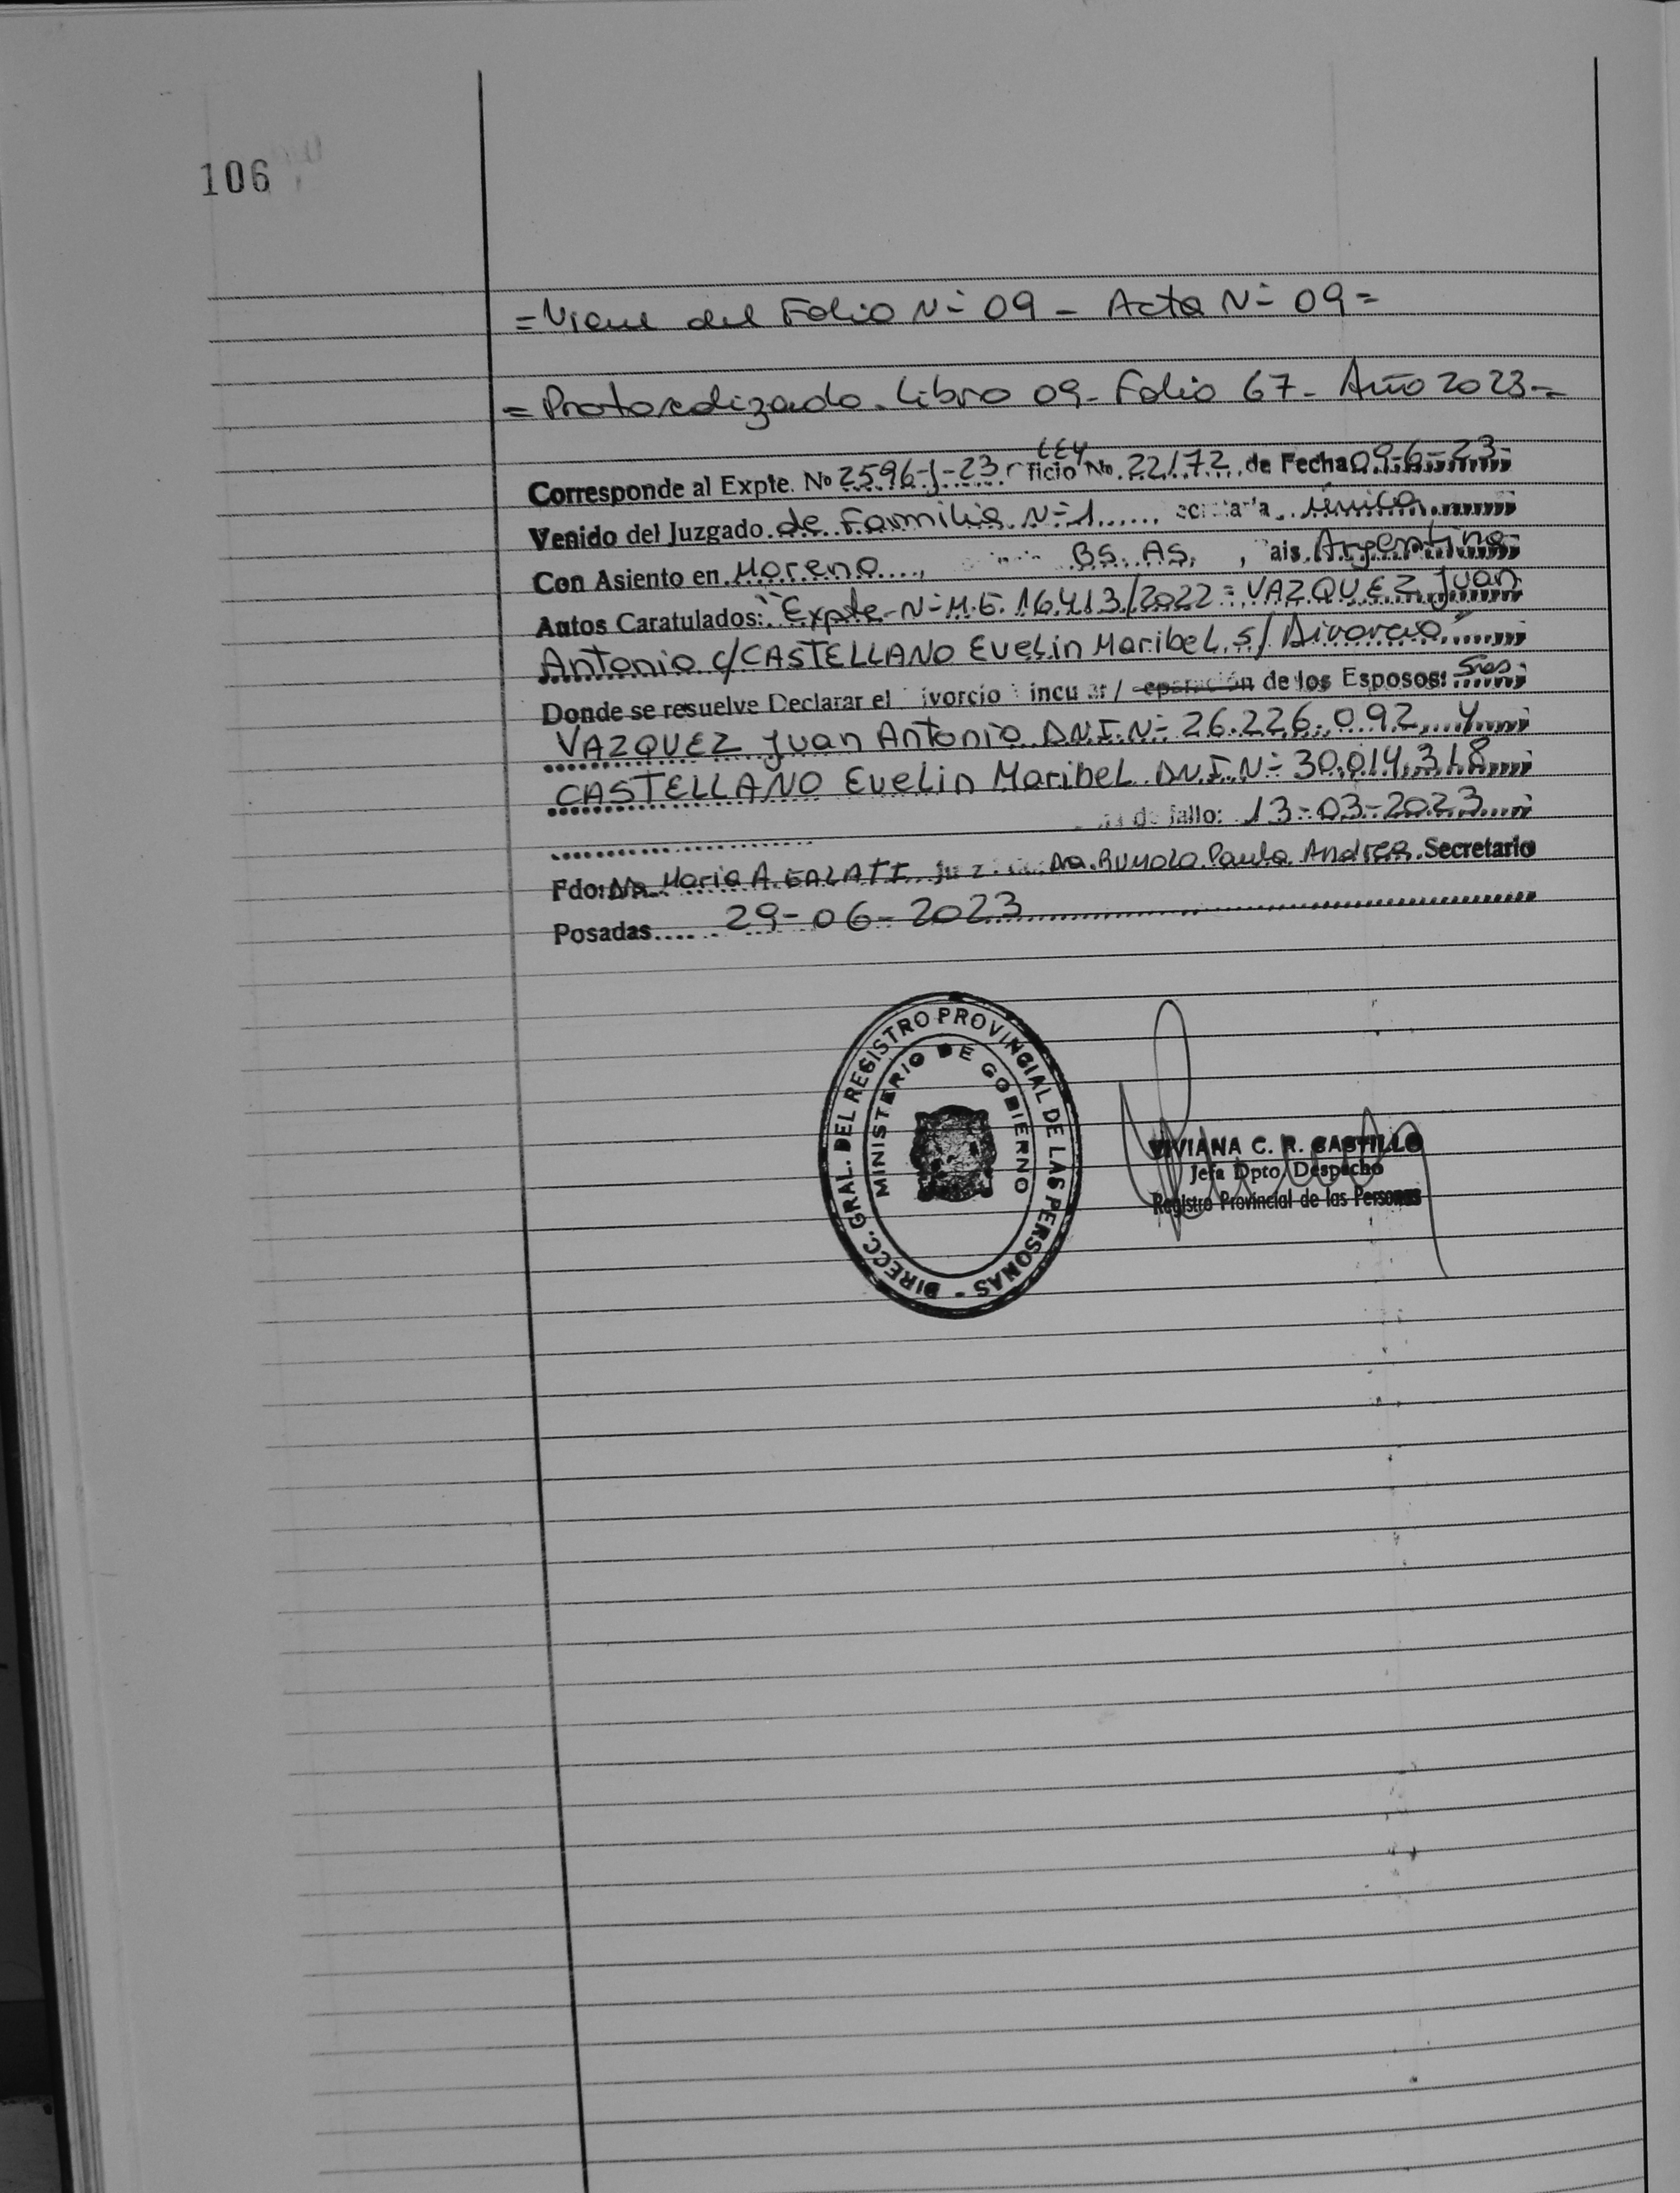 106
= Viene del Folio Nº 09 - Acta Nº 09 =
= Protocolizado. Libro 09 - Folio 67 - Año 2023 - =
LEY
Corresponde al Expte. Nº 2596-J-23 ficio No. 22172 de Fecha 09-6-23-
Venido del Juzgado de Familia Nº 1 única
Con Asiento en Moreno, BS. AS. , ais Argentina
Autos Caratulados: "Expte Nº M.E. 16413/2022 = VAZQUEZ Juan
Antonio c/ CASTELLANO Evelin Maribel s/ Divorcio"
Donde se resuelve Declarar el ivorcio incu ar / eparación de los Esposos: Sres.
VAZQUEZ Juan Antonio D.N.I. Nº 26.226.092 y
CASTELLANO Evelin Maribel D.N.I. Nº 30.014.318
de fallo: 13-03-2023
Fdo: Dra. Maria A. GALATI Dra. RUMOLO Paula Andrea Secretario
Posadas 29-06-2023
DIRECC. GRAL. DEL REGISTRO PROVINCIAL DE LAS PERSONAS -
MINISTERIO DE GOBIERNO
VIVIANA C. R. CASTILLO
Jefa Dpto. Despacho
Registro Provincial de las Personas